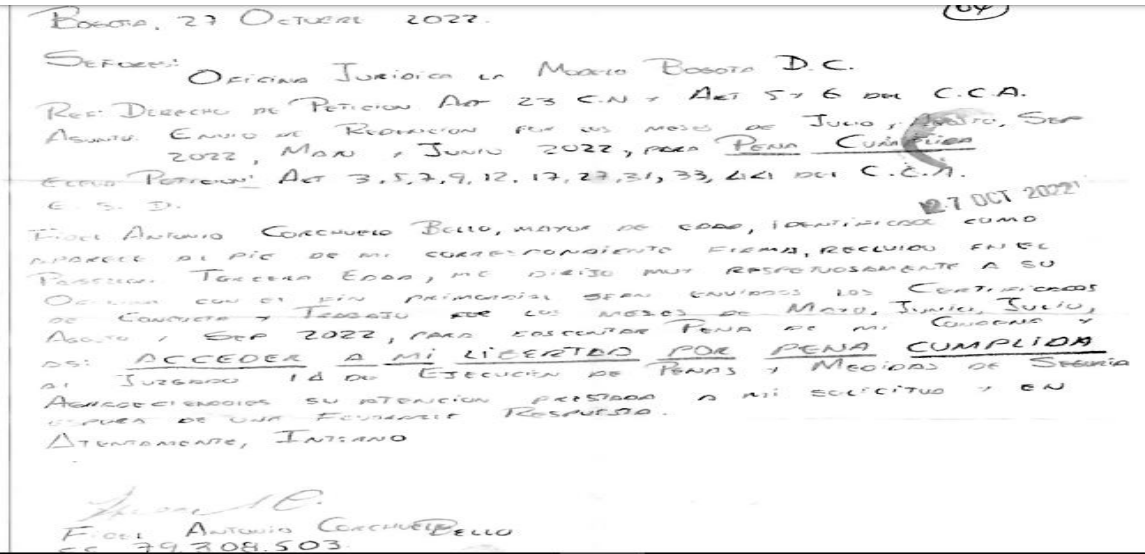 64
BOGOTA, 27 OCTUBRE 2022.
SEÑORES:
OFICINA JURIDICA LA MODELO BOGOTA D.C.
REF: DERECHO DE PETICION ART 23 C.N Y ART 5 Y 6 DEL C.C.A.
ASUNTO: ENVIO DE REDENCION POR LOS MESES DE JULIO, AGOSTO, SEP
2022, MAYO, JUNIO 2022, PARA PENA CUMPLIDA
PETICION: ART 3,5,7,9,12,17,27,31,33,44 DEL C.C.A.
27 OCT 2022
E. S. D.
FIDEL ANTONIO CORCHUELO BELLO, MAYOR DE EDAD, IDENTIFICADO COMO
APARECE AL PIE DE MI CORRESPONDIENTE FIRMA, RECLUIDO EN EL
TERCERA EDAD, ME DIRIJO MUY RESPETUOSAMENTE A SU
OFICINA CON EL FIN PRIMORDIAL SEAN ENVIADOS LOS CERTIFICADOS
DE CONDUCTA Y TRABAJO POR LOS MESES DE MAYO, JUNIO, JULIO,
AGOSTO, SEP 2022, PARA DESCONTAR PENA DE MI CONDENA Y
ASI: ACCEDER A MI LIBERTAD POR PENA CUMPLIDA
AL JUZGADO 14 DE EJECUCION DE PENAS Y MEDIDAS DE SEGURIA
AGRADECIENDOLES SU ATENCION PRESTADA A MI SOLICITUD Y EN
ESPERA DE UNA FAVORABLE RESPUESTA.
ATENTAMENTE, INTERNO
FIDEL ANTONIO CORCHUELO BELLO
CC 79.308.503